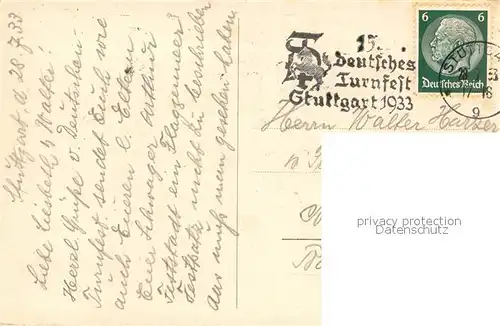 Stuttgart d 28.7.33
Liebe Liesbeth u Walter!
Herzl. Grüße v. Deutschen
Turnfest sendet Euch wie
auch Eueren l. Eltern
Euer Schwager Arthur
Feststadt ein Flaggenmeer
Festplatz nicht zu beschreiben
das muß man gesehen haben
15.
Deutsches
Turnfest
Stuttgart 1933
6 6
Deutsches Reich
STUTTGA
Herrn Walter
privacy protection
Datenschutz